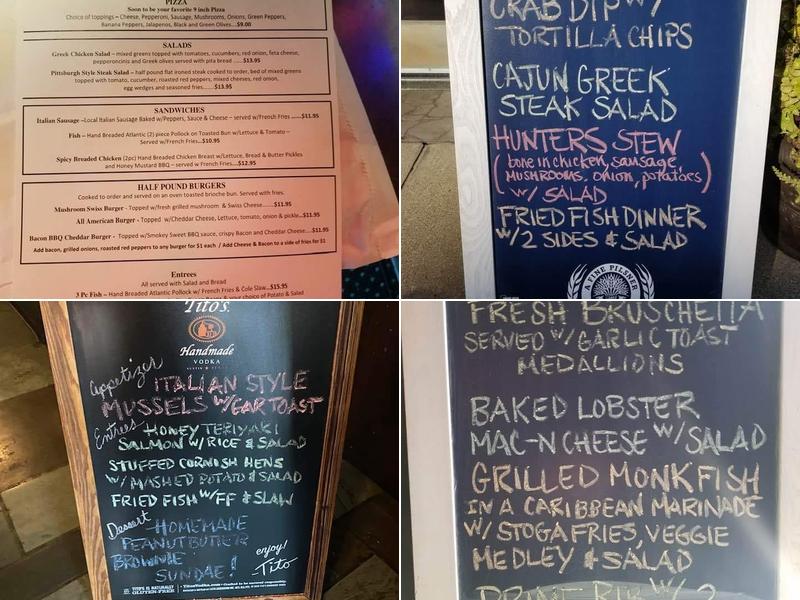 PIZZA
Soon to be your favorite 9 inch Pizza
Choice of toppings – Cheese, Pepperoni, Sausage, Mushrooms, Onions, Green Peppers,
Banana Peppers, Jalapenos, Black and Green Olives...$9.00
SALADS
Greek Chicken Salad – mixed greens topped with tomatoes, cucumbers, red onion, feta cheese,
pepperoncini and Greek olives served with pita bread ......$13.95
Pittsburgh Style Steak Salad – half pound flat ironed steak cooked to order, bed of mixed greens
topped with tomato, cucumber, roasted red peppers, mixed cheeses, red onion,
egg wedges and seasoned fries......$13.95
SANDWICHES
Italian Sausage –Local Italian Sausage Baked w/Peppers, Sauce & Cheese – served w/French Fries ......$11.95
Fish – Hand Breaded Atlantic (2) piece Pollock on Toasted Bun w/Lettuce & Tomato –
Served w/French Fries...$10.95
Spicy Breaded Chicken (2pc) Hand Breaded Chicken Breast w/Lettuce, Bread & Butter Pickles
and Honey Mustard BBQ – served w French Fries....$12.95
HALF POUND BURGERS
Cooked to order and served on an oven toasted brioche bun. Served with fries.
Mushroom Swiss Burger - Topped w/fresh grilled mushroom & Swiss Cheese......$11.95
All American Burger - Topped w/Cheddar Cheese, Lettuce, tomato, onion & pickle...$11.95
Bacon BBQ Cheddar Burger - Topped w/Smokey Sweet BBQ sauce, crispy Bacon and Cheddar Cheese....$11.95
Add bacon, grilled onions, roasted red peppers to any burger for $1 each / Add Cheese & Bacon to a side of fries for $1
Entrees
All served with Salad and Bread
3 Pc Fish – Hand Breaded Atlantic Pollock w/ French Fries & Cole Slaw...$15.95
your choice of Potato & Salad
CRAB DIP W/
TORTILLA CHIPS
CAJUN GREEK
STEAK SALAD
HUNTERS STEW
(bone in chicken, sausage,
MUSHROOMS, ONION, potatoes)
W/ SALAD
FRIED FISH DINNER
W/ 2 SIDES & SALAD
A FINE PILSNER
Tito's
Handmade
VODKA
AUSTIN TEXAS
Appetizer
ITALIAN STYLE
MUSSELS W/ GAR TOAST
Entrees HONEY TERIYAKI
SALMON W/ RICE & SALAD
STUFFED CORNISH HENS
W/ MASHED POTATO & SALAD
FRIED FISH W/ FF & SLAW
Dessert HOMEMADE
PEANUT BUTTER
BROWNIE
SUNDAE!
enjoy!
Tito
TITO'S IS NATURALLY
GLUTEN-FREE
FRESH BRUSCHETTA
SERVED W/ GARLIC TOAST
MEDALLIONS
BAKED LOBSTER
MAC-N CHEESE W/ SALAD
GRILLED MONKFISH
IN A CARIBBEAN MARINADE
W/ STOGA FRIES, VEGGIE
MEDLEY & SALAD
PRIME RIB W/ 2